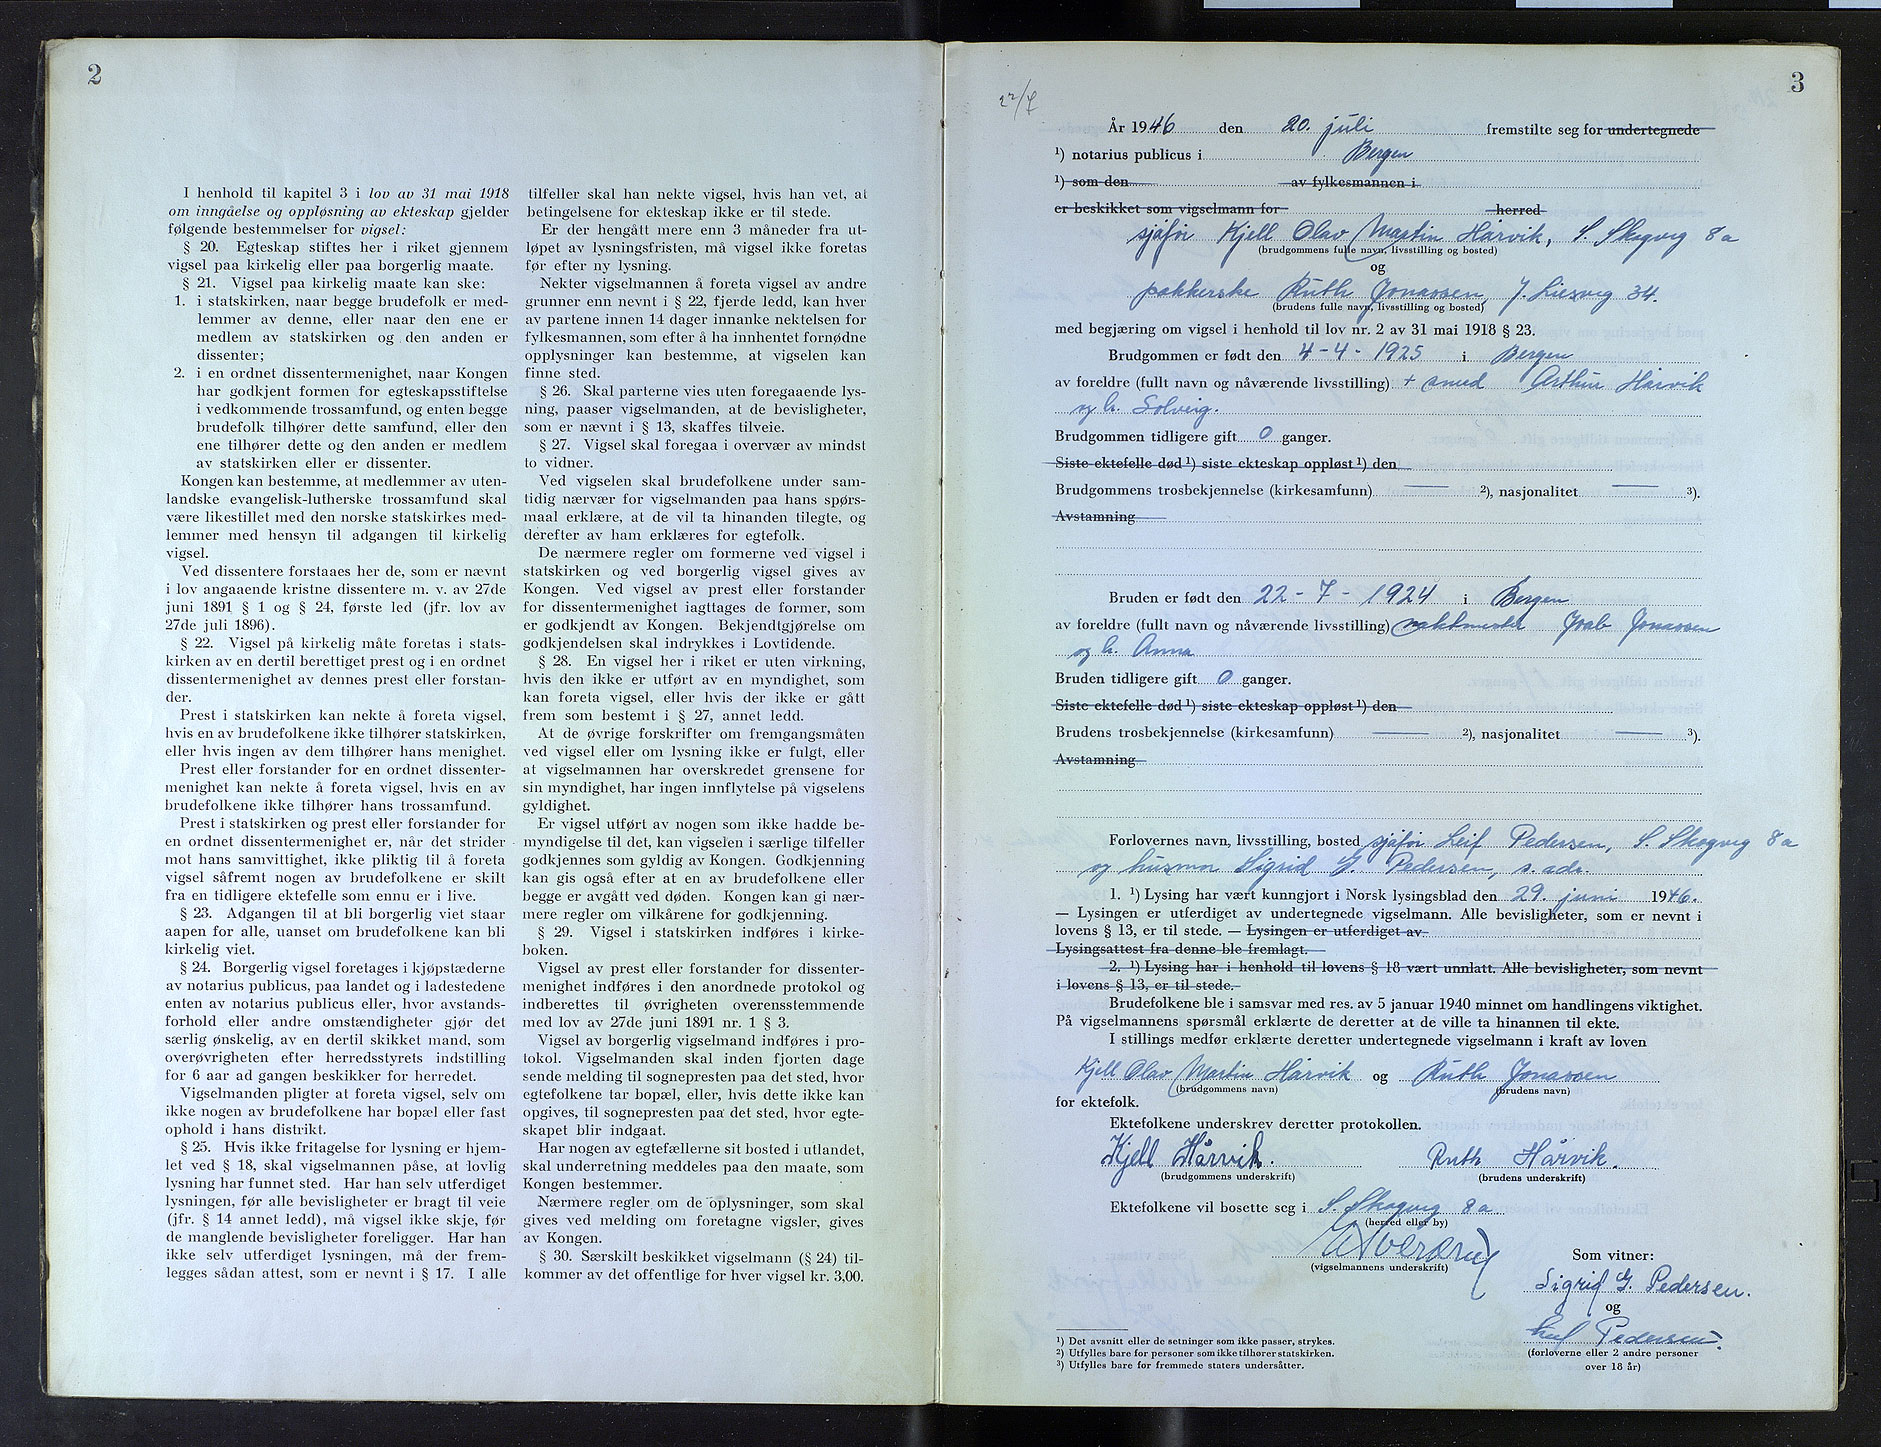 2
I henhold til kapitel 3 i lov av 31 mai 1918
om inngåelse og oppløsning av ekteskap gjelder
følgende bestemmelser for vigsel:
§ 20. Egteskap stiftes her i riket gjennem
vigsel paa kirkelig eller paa borgerlig maate.
§ 21. Vigsel paa kirkelig maate kan ske:
1. i statskirken, naar begge brudefolk er med-
lemmer av denne, eller naar den ene er
medlem av statskirken og den anden er
dissenter;
2. i en ordnet dissentermenighet, naar Kongen
har godkjent formen for egteskapsstiftelse
i vedkommende trossamfund, og enten begge
brudefolk tilhører dette samfund, eller den
ene tilhører dette og den anden er medlem
av statskirken eller er dissenter.
Kongen kan bestemme, at medlemmer av uten-
landske evangelisk-lutherske trossamfund skal
være likestillet med den norske statskirkes med-
lemmer med hensyn til adgangen til kirkelig
vigsel.
Ved dissentere forstaaes her de, som er nævnt
i lov angaaende kristne dissentere m. v. av 27de
juni 1891 § 1 og § 24, første led (jfr. lov av
27de juli 1896).
§ 22. Vigsel på kirkelig måte foretas i stats-
kirken av en dertil berettiget prest og i en ordnet
dissentermenighet av dennes prest eller forstan-
der.
Prest i statskirken kan nekte å foreta vigsel,
hvis en av brudefolkene ikke tilhører statskirken,
eller hvis ingen av dem tilhører hans menighet.
Prest eller forstander for en ordnet dissenter-
menighet kan nekte å foreta vigsel, hvis en av
brudefolkene ikke tilhører hans trossamfund.
Prest i statskirken og prest eller forstander for
en ordnet dissentermenighet er, når det strider
mot hans samvittighet, ikke pliktig til å foreta
vigsel såfremt nogen av brudefolkene er skilt
fra en tidligere ektefelle som ennu er i live.
§ 23. Adgangen til at bli borgerlig viet staar
aapen for alle, uanset om brudefolkene kan bli
kirkelig viet.
§ 24. Borgerlig vigsel foretages i kjøpstæderne
av notarius publicus, paa landet og i ladestedene
enten av notarius publicus eller, hvor avstands-
forhold eller andre omstændigheter gjør det
særlig ønskelig, av en dertil skikket mand, som
overøvrigheten efter herredsstyrets indstilling
for 6 aar ad gangen beskikker for herredet.
Vigselmanden pligter at foreta vigsel, selv om
ikke nogen av brudefolkene har bopæl eller fast
ophold i hans distrikt.
§ 25. Hvis ikke fritagelse for lysning er hjem-
let ved § 18, skal vigselmannen påse, at lovlig
lysning har funnet sted. Har han selv utferdiget
lysningen, før alle bevisligheter er bragt til veie
(jfr. § 14 annet ledd), må vigsel ikke skje, før
de manglende bevisligheter foreligger. Har han
ikke selv utferdiget lysningen, må der frem-
legges sådan attest, som er nevnt i § 17. I alle
tilfeller skal han nekte vigsel, hvis han vet, at
betingelsene for ekteskap ikke er til stede.
Er der hengått mere enn 3 måneder fra ut-
løpet av lysningsfristen, må vigsel ikke foretas
før efter ny lysning.
Nekter vigselmannen å foreta vigsel av andre
grunner enn nevnt i § 22, fjerde ledd, kan hver
av partene innen 14 dager innanke nektelsen for
fylkesmannen, som efter å ha innhentet fornødne
opplysninger kan bestemme, at vigselen kan
finne sted.
§ 26. Skal parterne vies uten foregaaende lys-
ning, paaser vigselmanden, at de bevisligheter,
som er nævnt i § 13, skaffes tilveie.
§ 27. Vigsel skal foregaa i overvær av mindst
to vidner.
Ved vigselen skal brudefolkene under sam-
tidig nærvær for vigselmanden paa hans spørs-
maal erklære, at de vil ta hinanden tilegte, og
derefter av ham erklæres for egtefolk.
De nærmere regler om formerne ved vigsel i
statskirken og ved borgerlig vigsel gives av
Kongen. Ved vigsel av prest eller forstander
for dissentermenighet iagttages de former, som
er godkjendt av Kongen. Bekjendtgjørelse om
godkjendelsen skal indrykkes i Lovtidende.
§ 28. En vigsel her i riket er uten virkning,
hvis den ikke er utført av en myndighet, som
kan foreta vigsel, eller hvis der ikke er gått
frem som bestemt i § 27, annet ledd.
At de øvrige forskrifter om fremgangsmåten
ved vigsel eller om lysning ikke er fulgt, eller
at vigselmannen har overskredet grensene for
sin myndighet, har ingen innflytelse på vigselens
gyldighet.
Er vigsel utført av nogen som ikke hadde be-
myndigelse til det, kan vigselen i særlige tilfeller
godkjennes som gyldig av Kongen. Godkjenning
kan gis også efter at en av brudefolkene eller
begge er avgått ved døden. Kongen kan gi nær-
mere regler om vilkårene for godkjenning.
§ 29. Vigsel i statskirken indføres i kirke-
boken.
Vigsel av prest eller forstander for dissenter-
menighet indføres i den anordnede protokol og
indberettes til øvrigheten overensstemmende
med lov av 27de juni 1891 nr. 1 § 3.
Vigsel av borgerlig vigselmand indføres i pro-
tokol. Vigselmanden skal inden fjorten dage
sende melding til sognepresten paa det sted, hvor
egtefolkene tar bopæl, eller, hvis dette ikke kan
opgives, til sognepresten paa det sted, hvor egte-
skapet blir indgaat.
Har nogen av egtefællerne sit bosted i utlandet,
skal underretning meddeles paa den maate, som
Kongen bestemmer.
Nærmere regler om de oplysninger, som skal
gives ved melding om foretagne vigsler, gives
av Kongen.
§ 30. Særskilt beskikket vigselmann (§ 24) til-
kommer av det offentlige for hver vigsel kr. 3,00.
3
22/7
År 1946 den 20. juli fremstilte seg for undertegnede
¹) notarius publicus i Bergen
¹) som den av fylkesmannen i
er beskikket som vigselmann for herred
sjåfør Kjell Olav Martin Hårvik, S. Skogvg 8a
(brudgommens fulle navn, livsstilling og bosted)
og
pakkerske Ruth Jonassen, J. Liesveg 34.
(brudens fulle navn, livsstilling og bosted)
med begjæring om vigsel i henhold til lov nr. 2 av 31 mai 1918 § 23.
Brudgommen er født den 4-4-1925 i Bergen
av foreldre (fullt navn og nåværende livsstilling) + smed Arthur Hårvik
og h. Solveig.
Brudgommen tidligere gift 0 ganger.
Siste ektefelle død ¹) siste ekteskap oppløst ¹) den
Brudgommens trosbekjennelse (kirkesamfunn) — ²), nasjonalitet — ³).
Avstamning
Bruden er født den 22-7-1924 i Bergen
av foreldre (fullt navn og nåværende livsstilling) vaktmester Joab Jonassen
og h. Anna
Bruden tidligere gift 0 ganger.
Siste ektefelle død ¹) siste ekteskap oppløst ¹) den
Brudens trosbekjennelse (kirkesamfunn) — ²), nasjonalitet — ³).
Avstamning
Forlovernes navn, livsstilling, bosted sjåfør Leif Pedersen, S. Skogveg 8a
og husmor Sigrid G. Pedersen, s. adr.
1. ¹) Lysing har vært kunngjort i Norsk lysingsblad den 29. juni 1946.
— Lysingen er utferdiget av undertegnede vigselmann. Alle bevisligheter, som er nevnt i
lovens § 13, er til stede. — Lysingen er utferdiget av
Lysingsattest fra denne ble fremlagt.
2. ¹) Lysing har i henhold til lovens § 18 vært unnlatt. Alle bevisligheter, som nevnt
i lovens § 13, er til stede.
Brudefolkene ble i samsvar med res. av 5 januar 1940 minnet om handlingens viktighet.
På vigselmannens spørsmål erklærte de deretter at de ville ta hinannen til ekte.
I stillings medfør erklærte deretter undertegnede vigselmann i kraft av loven
Kjell Olav Martin Hårvik og Ruth Jonassen
(brudgommens navn) (brudens navn)
for ektefolk.
Ektefolkene underskrev deretter protokollen.
Kjell Hårvik. Ruth Hårvik.
(brudgommens underskrift) (brudens underskrift)
Ektefolkene vil bosette seg i S. Skogveg 8a
(herred eller by)
(vigselmannens underskrift)
Som vitner:
Sigrid G. Pedersen.
og
Leif Pedersen.
(forloverne eller 2 andre personer
over 18 år)
¹) Det avsnitt eller de setninger som ikke passer, strykes.
²) Utfylles bare for personer som ikke tilhører statskirken.
³) Utfylles bare for fremmede staters undersåtter.